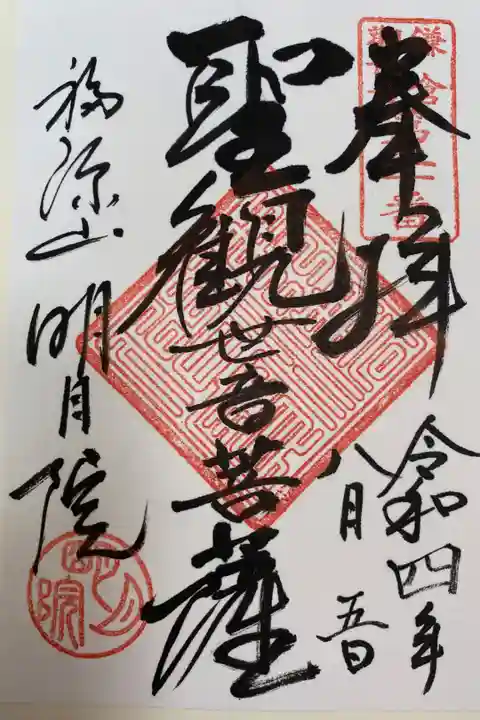 奉拝
令和四年
八月
五日
聖観世音菩薩
福源山
明月院